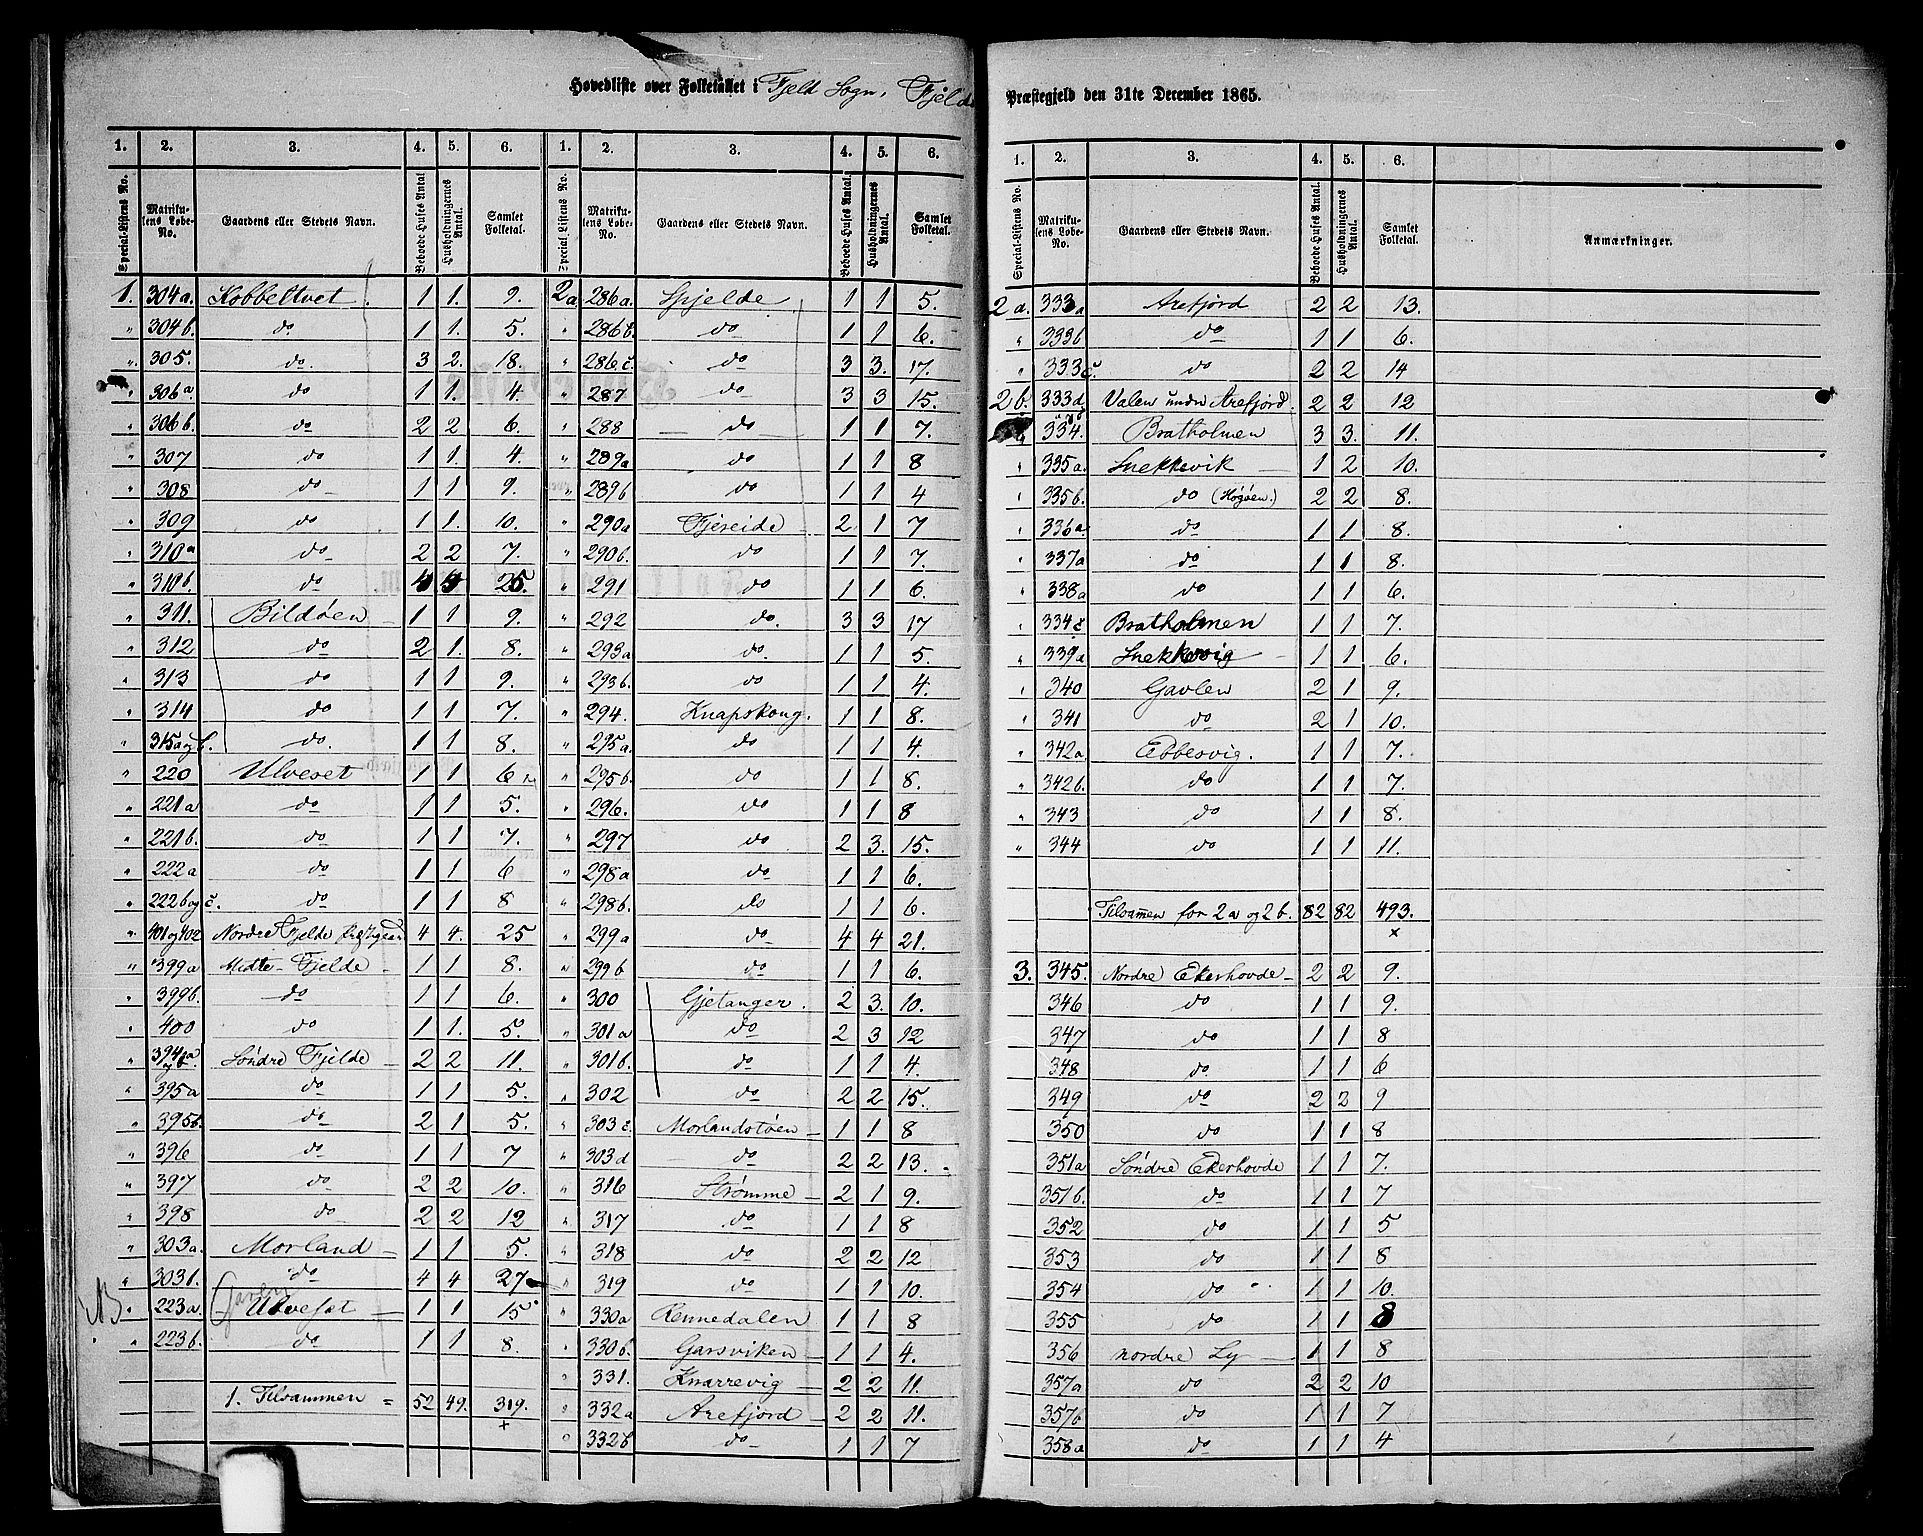 Hovedliste over Folketallet i Fjeld Sogn, Fjelde Præstegjeld den 31te December 1865.
1. 2. 3. 4. 5. 6. 1. 2. 3. 4. 5. 6.
Special-Listens No. Matrikulens Løbe-No. Gaardens eller Stedets Navn. Beboede Huses Antal Husholdningernes Antal. Samlet Folketal. Special-Listens No. Matrikulens Løbe-No. Gaardens eller Stedets Navn. Beboede Huses Antal. Husholdningernes Antal. Samlet Folketal.
1. 304a. Kobbeltvet 1 1. 9.
" 304b. do 1 1. 5.
" 305. do. 3 2. 18.
" 306a. do 1 1. 4.
" 306b. do 2 2 6.
" 307 do 1 1. 4.
" 308 do 1 1 9.
" 309 do 1 1. 10.
" 310a do 2 2 7.
" 310b. do 4 4 25.
" 311. Bildøen 1 1 9.
" 312 do 2 1. 8.
" 313 do 1 1 9.
" 314 do 1 1 7.
" 315a og b. do. 1 1 8.
" 220 Ulveset 1 1 6
" 221a do 1 1 5.
" 221b. do 1 1 7.
" 222a do 1 1 6
" 222b og c. do 1 1 8
" 401 og 402 Nordre Fjelde 4 4. 25
" 399a Midte-Fjelde 1 1 8.
" 399b. do 1 1 6.
" 400 do 1 1. 5.
" 394a og b. Søndre Fjelde 2 2 11.
" 395a do 1 1 5.
" 395b. do 2 1 5.
" 396 do 1 1 7
" 397 do 2 2 10.
" 398 do 2 2 12
" 303a. Morland 1 1 5.
" 303b. do 4 4 27
NB " 223a. Ulveset 1 1 15
" 223b. do 1 1 8.
1. Tilsammen = 52 49. 319.
+
2a 286a. Gjelde 1 1 5.
" 286b. do 1 1 6.
" 286c. do 3 3. 17.
" 287 do 3 3 15.
" 288 do 1 1 7.
" 289a do 1 1 8
" 289b do 1 1 4
" 290a Fjereide 2 1 7
" 290b. do 1 1 7.
" 291 do 1 1 6.
" 292 do. 3 3 17
" 293a do. 1 1 5.
" 293b. do 1 1 4.
" 294. Knapskong. 1 1 8.
" 295a. do 1 1 4.
" 295b. do 1 1 8.
" 296. do 1 1 8
" 297 do 2 3. 15.
" 298a do 1 1 6.
" 298b. do 1 1 6.
" 299a do 4 4 21.
" 299b do 1 1 6.
" 300 Gjetanger. 2 3. 10.
" 301a do 2 3 12
" 301b. do 1 1 4.
" 302 do 2 2 15.
" 303c. Morlandstøen 1 1 8
" 303d do 2 2 13.
" 316 Strømme 2 1 9.
" 317 do 1 1 8
" 318 do 2 2 12
" 319 do 1 1 10.
" 330a Rennedalen 1 1 8
" 330b. Garsviken 1 1 4.
" 331. Knarrevig 2 2 11.
" 332a Arefjord 2 2 11.
" 332b do 1 1 7
1. 2. 3. 4. 5. 6.
Special-Listens No. Matrikulens Løbe-No. Gaardens eller Stedets Navn. Beboede Huses Antal. Husholdningernes Antal. Samlet Folketal. Anmærkninger.
2a. 333a Arefjord 2 2 13.
" 333b do 1 1 6.
" 333c. do 2 2 14
2b. 333d Valen under Arefjord. 2 2 12
334. Bratholmen 3 3. 11.
" 335a. Snekkevik 1 2 10.
" 335b. do (Høgøen.) 2 2 8.
" 336a do 1 1 8.
" 337a do 1 1 8.
" 338a do 1 1 6.
" 334c Bratholmen 1 1 7.
" 339a Snekkevig 1 1 6.
" 340 Gavlen 2 1 9.
" 341 do 2 1 10.
" 342a Ebbesvig. 1 1 7.
" 342b. do 1 1 7.
" 343 do 1 1 8.
" 344 do 1 1 11.
Tilsammen for 2a og 2b. 82 82 493.
x
3. 345. Nordre Ekerhovde 2 2 9.
346 do 1 1 9.
347 do 1 1 8
348 do. 1 1 6
349 do 2 2 9
350 do 1 1 8
351a Søndre Ekerhovde 1 1 7.
351b. do 1 1 7
352 do 1 1 5
353 do 1 1 8
354 do 1 1 10.
355 do 1 1 8
356 nordre Ly 1 1 8
357a do 2 2 10
357b do 1 1 7
358a do 1 1 4